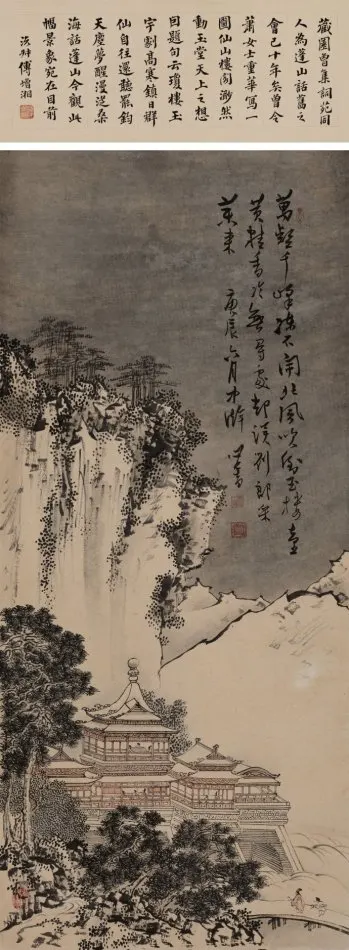 藏園曾集詞苑同
人為蓬山話舊之
會已十年矣曾令
蕭女士重華寫一
圖仙山樓閣渺然
動玉堂天上之想
因題句云瓊樓玉
宇劃高寒鎮日群
仙自往還聽罷鈞
天塵夢醒漫從桑
海話蓬山今觀此
幅景象宛在目前
沅叔傅增湘
萬壑千峰不開北風吹玉樓臺
黃精香冷無尋處却誤劉郎采
藥來 庚辰六月中澣 心畬